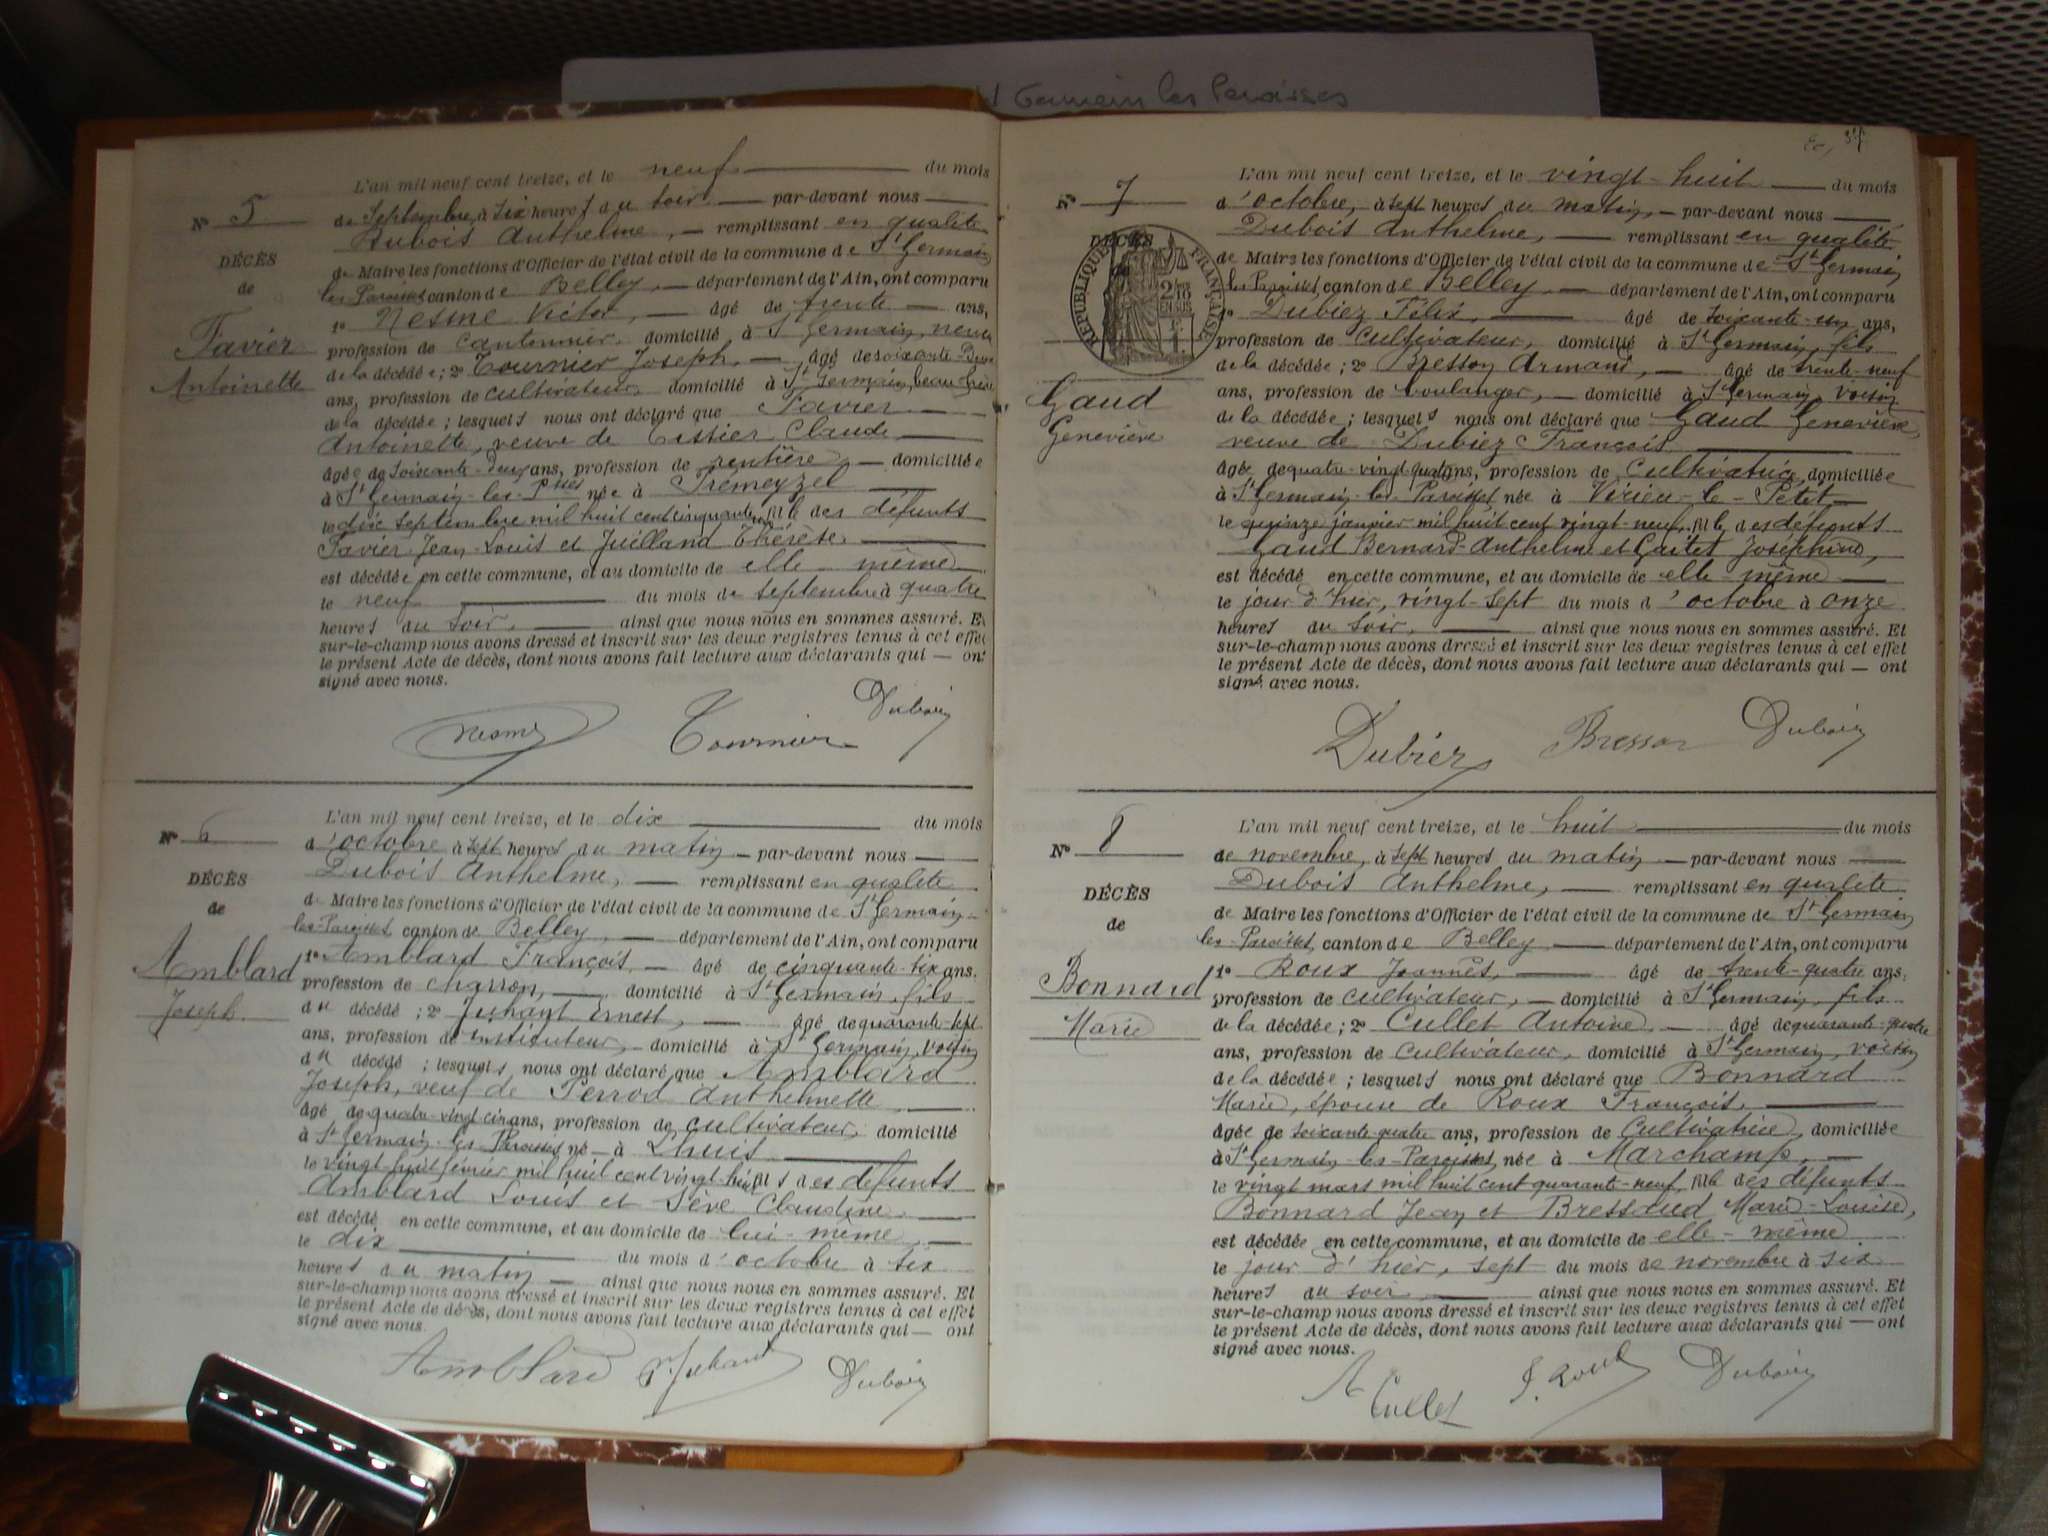 St Germain les Paroisses
N° 5
DÉCÈS
de
Favier
Antoinette
L'an mil neuf cent treize, et le neuf du mois
de Septembre, à six heures du soir par-devant nous
Dubois Anthelme, remplissant en qualité
de Maire les fonctions d'Officier de l'état civil de la commune de St Germain
les Paroisses canton de Belley, département de l'Ain, ont comparu
1° Nesme Victor, âgé de trente ans,
profession de cantonnier, domicilié à St Germain, neveu
de la décédée ; 2° Tournier Joseph, âgé de soixante
ans, profession de cultivateur, domicilié à St Germain, beau-frère
de la décédée ; lesquels nous ont déclaré que Favier
Antoinette, veuve de Tissier Claude
âgée de soixante-deux ans, profession de rentière domiciliée
à St Germain-les-Pssses née à Prémeyzel
le dix septembre mil huit cent cinquante fille des défunts
Favier Jean-Louis et Juilland Thérèse,
est décédée en cette commune, et au domicile de elle-même
le neuf du mois de septembre à quatre
heures du soir, ainsi que nous nous en sommes assuré. Et
sur-le-champ nous avons dressé et inscrit sur les deux registres tenus à cet effet
le présent Acte de décès, dont nous avons fait lecture aux déclarants qui — ont
signé avec nous.
Nesme Tournier Dubois
N° 6
DÉCÈS
de
Amblard
Joseph
L'an mil neuf cent treize, et le dix du mois
d'octobre à sept heures du matin par-devant nous
Dubois Anthelme, remplissant en qualité
de Maire les fonctions d'Officier de l'état civil de la commune de St Germain-
les-Paroisses canton de Belley, département de l'Ain, ont comparu
1° Amblard François, âgé de cinquante-six ans.
profession de charron, domicilié à St Germain, fils
du décédé ; 2° Juhant Ernest, âgé de quarante-sept
ans, profession de instituteur, domicilié à St Germain, voisin
du décédé ; lesquels nous ont déclaré que Amblard
Joseph, veuf de Perrod Anthelmette,
âgé de quatre-vingt-cinq ans, profession de cultivateur, domicilié
à St Germain-les Paroisses né à Lhuis
le vingt-huit février mil huit cent vingt-huit fils des défunts
Amblard Louis et Sève Claudine
est décédé en cette commune, et au domicile de lui-même,
le dix du mois d'octobre à six
heures du matin ainsi que nous nous en sommes assuré. Et
sur-le-champ nous avons dressé et inscrit sur les deux registres tenus à cet effet
le présent Acte de décès, dont nous avons fait lecture aux déclarants qui — ont
signé avec nous
Amblard Juhant Dubois
37
N° 7
DÉCÈS
RÉPUBLIQUE FRANÇAISE
Gaud
Geneviève
L'an mil neuf cent treize, et le vingt-huit du mois
d'octobre, à sept heures du matin, par-devant nous
Dubois Anthelme, remplissant en qualité
de Maire les fonctions d'Officier de l'état civil de la commune de St Germain
les Paroisses, canton de Belley, département de l'Ain, ont comparu
1° Dubiez Félix, âgé de soixante-un ans,
profession de cultivateur, domicilié à St Germain, fils
de la décédée ; 2° Bresson Armand, âgé de trente-neuf
ans, profession de boulanger, domicilié à St Germain, voisin
de la décédée ; lesquels nous ont déclaré que Gaud Geneviève,
veuve de Dubiez François
âgée de quatre-vingt-quatre ans, profession de cultivatrice, domiciliée
à St Germain-les Paroisses née à Virieu-le-Petit
le quinze janvier mil huit cent vingt-neuf, fille des défunts
Gaud Bernard-Anthelme et Gaitet Joséphine,
est décédé en cette commune, et au domicile de elle-même
le jour d'hier, vingt-sept du mois d'octobre à onze
heures du soir, ainsi que nous nous en sommes assuré. Et
sur-le-champ nous avons dressé et inscrit sur les deux registres tenus à cet effet
le présent Acte de décès, dont nous avons fait lecture aux déclarants qui — ont
signé avec nous.
Dubiez Bresson Dubois
N° 8
DÉCÈS
de
Bonnard
Marie
L'an mil neuf cent treize, et le huit du mois
de novembre, à sept heures du matin par-devant nous
Dubois Anthelme, remplissant en qualité
de Maire les fonctions d'Officier de l'état civil de la commune de St Germain
les-Paroisses, canton de Belley département de l'Ain, ont comparu
1° Roux Joannès, âgé de trente-quatre ans,
profession de cultivateur, domicilié à St Germain, fils
de la décédée ; 2° Cullet Antoine, âgé de quarante-quatre
ans, profession de cultivateur, domicilié à St Germain, voisin
de la décédée ; lesquels nous ont déclaré que Bonnard
Marie, épouse de Roux François,
âgée de soixante-quatre ans, profession de cultivatrice, domiciliée
à St Germain-les-Paroisses, née à Marchamp,
le vingt mars mil huit cent quarante-neuf, fille des défunts
Bonnard Jean et Bressoud Marie-Louise,
est décédée en cette commune, et au domicile de elle-même
le jour d'hier, sept du mois de novembre à six
heures du soir, ainsi que nous nous en sommes assuré. Et
sur-le-champ nous avons dressé et inscrit sur les deux registres tenus à cet effet
le présent Acte de décès, dont nous avons fait lecture aux déclarants qui — ont
signé avec nous.
A Cullet J. Roux Dubois